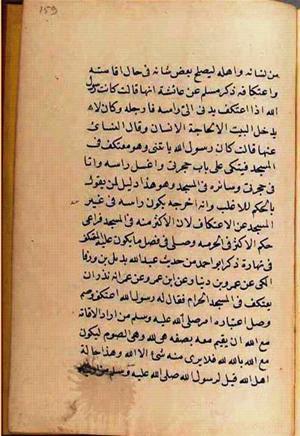 159
من لسانه واهله ليصلح بعض شانه في حال اقامته
واعتكافه ذكر مسلم عن عائشة انها قالت كانت رسول
الله اذا اعتكف يدنى الى راسه فارجله وكان لا
يدخل البيت الا لحاجة الانسان وقال النسائى
عنها قالت كان رسول الله ياتينى وهو معتكف في
المسجد فيتكى على باب حجرتى واغسل راسه وانا
في حجرتى وسائره في المسجد وهو هذا دليل لمن يقول
بالحكم للاغلب وانه اخرجه بكون راسه في غير
المسجد عن الاعتكاف لان الاكثر منه في المسجد فراعى
حكم الاكثر في الجرمه وصلى في فصل ما يكون عليه المعتكف
في نهاره ذكر ابو احمد من حديث عبدالله بديل بن ورقا
المكى عن عمرو بن دينار عن ابن عمر عن عمر انه نذر ان
يعتكف في المسجد الحرام فقال له رسول الله اعتكف وصم
وصل اعتباره امر صلى الله عليه وسلم من اراد الاقامة
مع الله ان يقيم معه بصفه هى لله وهى الصوم ليكون
مع الله بالله لله فلا يرى منه شئ الا الله وهذا حالة
اهل الله قيل لرسول الله صلى الله عليه وسلم من